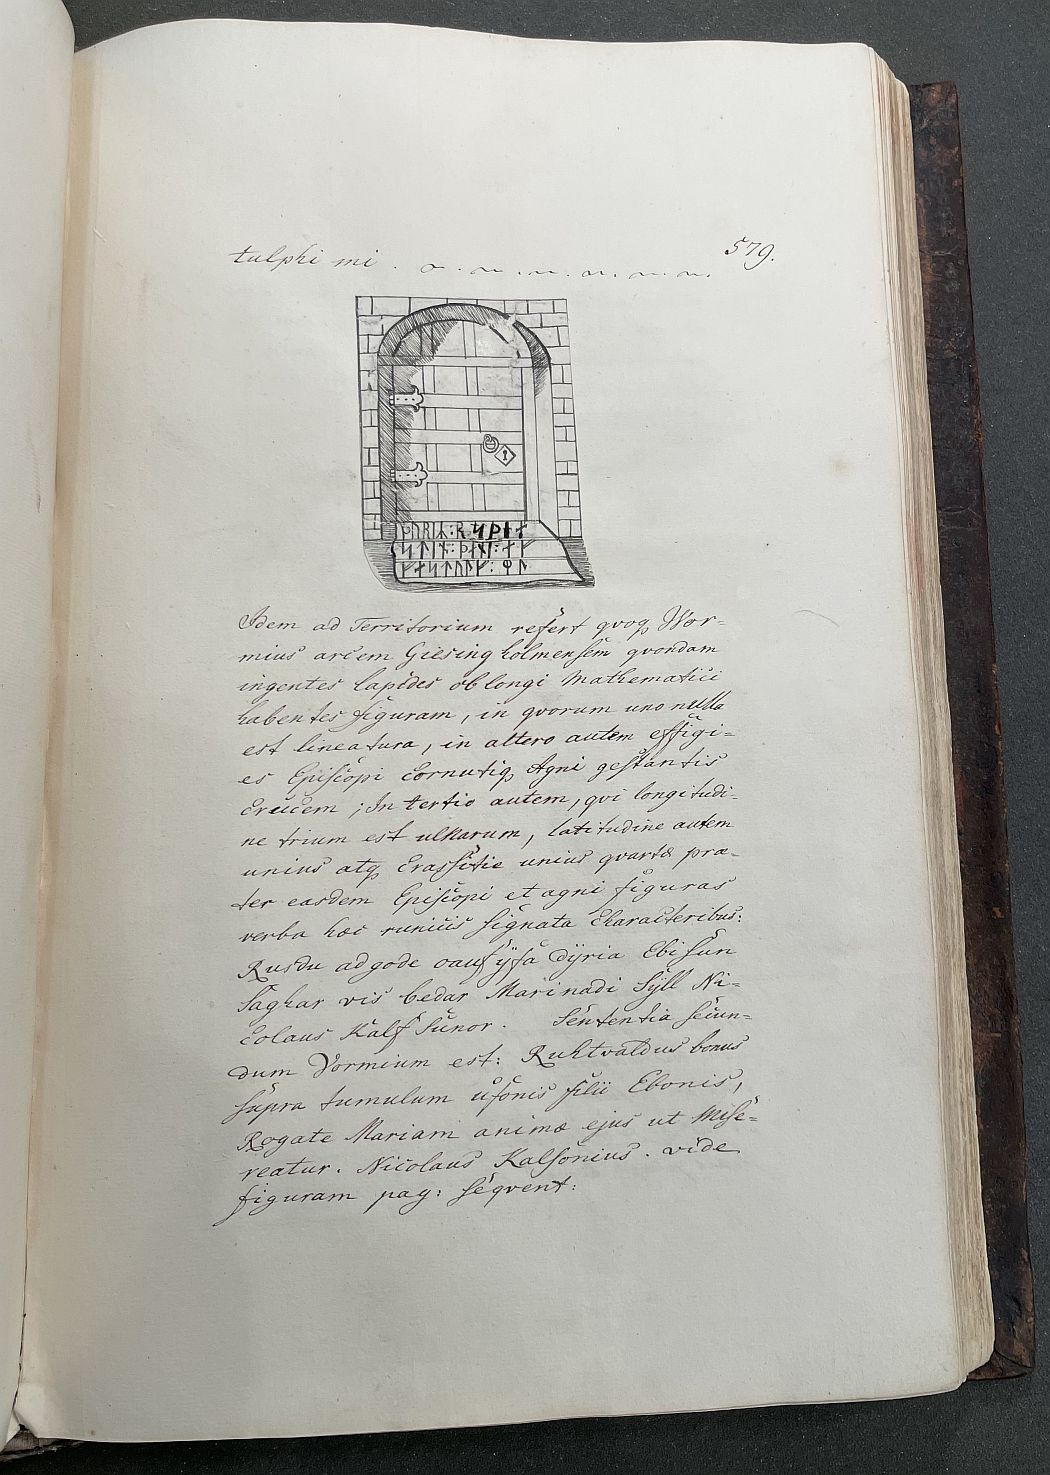 tulphi mi . 579.
ᚦᚢᚱᛁᛦ:ᚱ
ᛋᛏᛁᚾ:ᚦᛅᚾᛁ:ᛅᚠ
Idem ad Territorium refert qvoq Wor=
mius arcem Giesingholmensem qvondam
ingentes lapides oblongi Mathematici
habentes figuram, in qvorum uno nulla
est lineatura, in altero autem effigi=
es Episcopi Cornutiq Agni gestantis
Crucem ; In tertio autem, qvi longitudi=
ne trium est ulnarum, latitudine autem
unius atq Crassitie unius qvartæ præ=
ter easdem Episcopi et agni figuras
verba hæc runicis signata Characteribus:
Rusdu adgode oauf ÿsa Dÿria Ebi sun
saghar vis bedar Marinadi Sÿll Ni=
colaus Kalf Sunor . Sententia secun=
dum Vormium est: Ruhtvaldus bonus
supra tumulum usonis filii Ebonis,
Rogate Mariam animæ ejus ut Mise=
reatur. Nicolaus Kalsonius . vide
figuram pag: seqvent: